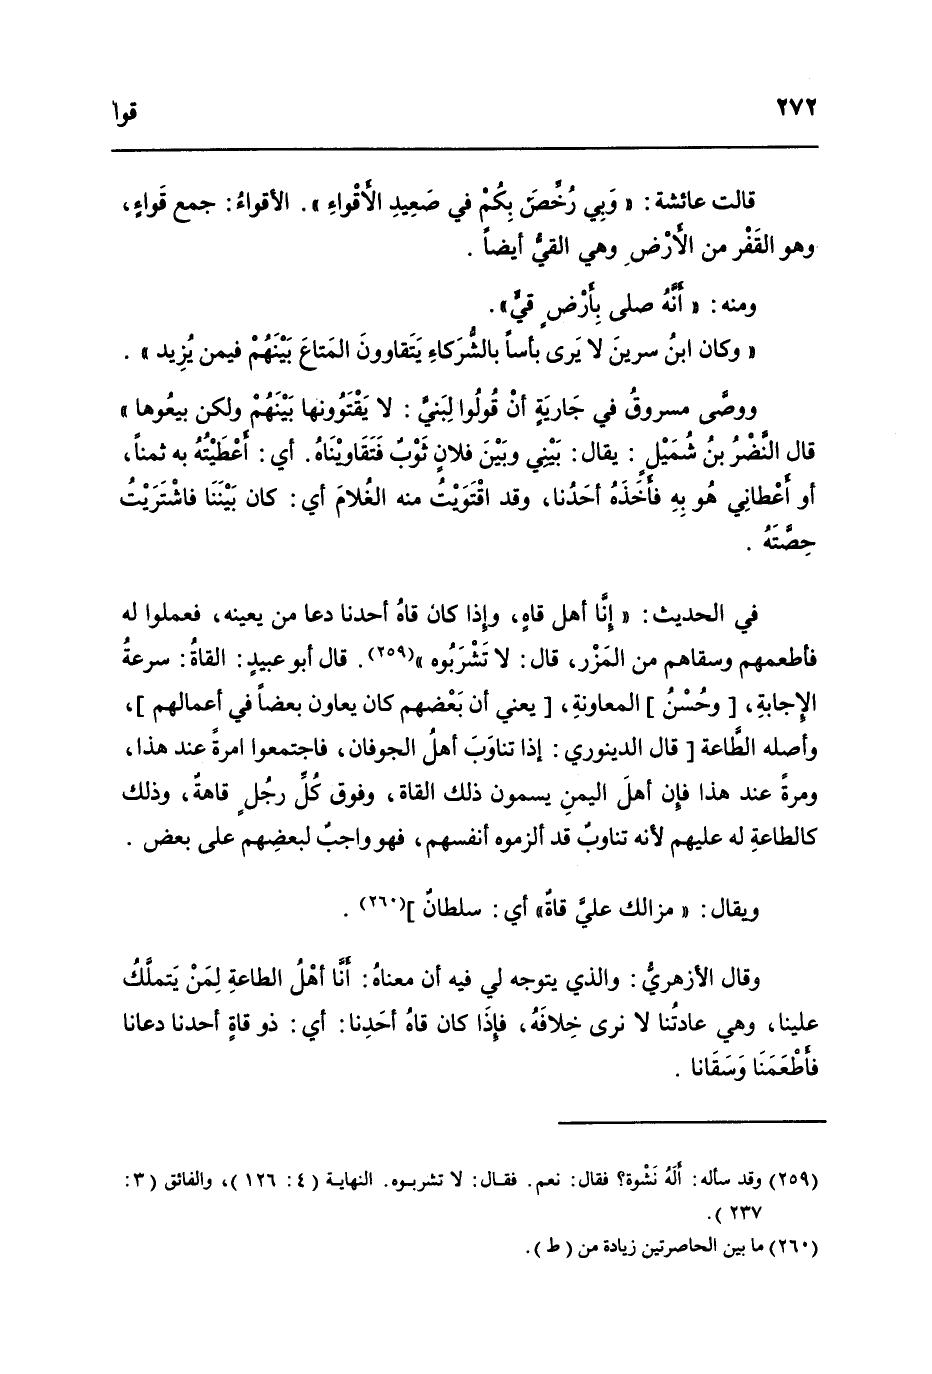 ٢٧٢
قوا
قالت عائشة: « وَبِي رُخِّصَ بِكُمْ في صَعِيدِ الأَقْواءِ ». الأقواءُ: جمع قَواءٍ،
وهو القَفْر من الأَرْضِ وهي القيُّ أيضاً .
ومنه: « أَنَّهُ صلى بِأَرْضٍ قيٍّ».
« وكان ابنُ سرينَ لا يَرى بأساً بالشُّرَكاءِ يَتَقاوونَ المَتاعَ بَيْنَهُمْ فيمن يُزِيد » .
ووصَّى مسروقُ في جَاريَةٍ أنْ قُولُوا لِبَنيَّ: لا يَقْتَوُونها بَيْنَهُمْ ولكن بيعُوها »
قال النَّضْرُ بنُ شُمَيْلٍ: يقال: بَيْنِي وبَيْنَ فلانٍ ثَوْبٌ فَتَقَاويْنَاهُ. أي: أَعْطَيْتُهُ به ثمناً،
أو أَعْطانِي هُو بِهِ فأَخَذَهُ أحَدُنا، وقد اقْتَوَيْتُ منه الغُلامَ أي: كان بَيْنَنَا فاشْتَرَيْتُ
حِصَّتَهُ .
في الحديث: « إِنَّا أهل قاهٍ، وإذا كان قاهُ أحدنا دعا من يعينه، فعملوا له
فأطعمهم وسقاهم من المَزْر، قال: لا تَشْرَبُوه »(٢٥٩). قال أبو عبيدٍ: القاهُ: سرعةُ
الإجابةِ، [ وحُسْنُ ] المعاونةِ، [ يعني أن بَعْضهم كان يعاون بعضاً في أعمالهم ]،
وأصله الطَّاعة [ قال الدينوري: إذا تناوَبَ أهلُ الجوفان، فاجتمعوا امرةً عند هذا،
ومرةً عند هذا فإن أهلَ اليمنِ يسمون ذلك القاة، وفوق كُلِّ رجُلٍ قاهةٌ، وذلك
كالطاعةِ له عليهم لأنه تناوبٌ قد ألزموه أنفسهم، فهو واجبٌ لبعضِهم على بعض .
ويقال: « مزالك عليَّ قاةٌ» أي: سلطانٌ ](٢٦٠) .
وقال الأزهريُّ: والذي يتوجه لي فيه أن معناهُ: أَنَّا أهْلُ الطاعةِ لِمَنْ يَتملَّكُ
علينا، وهي عادتُنا لا نرى خِلافَهُ، فإِذَا كان قاهُ أحَدِنا: أي: ذو قاةٍ أحدنا دعانا
فأَطْعَمَنَا وَسَقَانا .
(٢٥٩) وقد سأله: أَلَهُ نَشْوة؟ فقال: نعم. فقال: لا تشربوه. النهاية ( ٤: ١٢٦ )، والفائق ( ٣:
٢٣٧ ).
(٢٦٠) ما بين الحاصرتين زيادة من ( ط ).